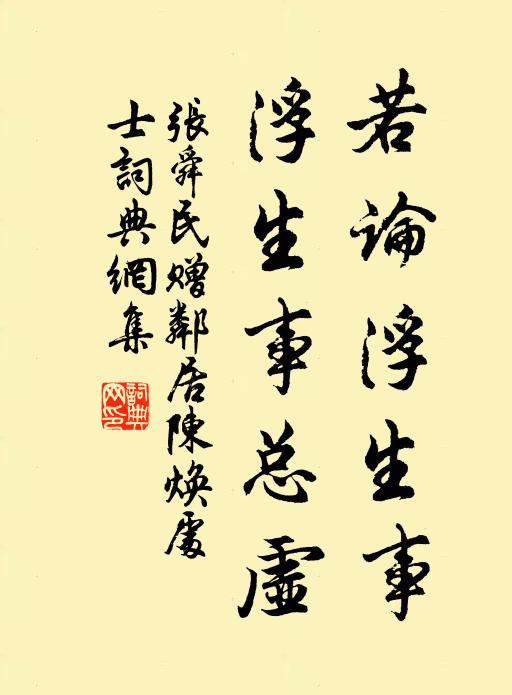 若論浮生事
浮生事总虛
張舜民贈鄰居陳煥處
士詞典網集
詞典
网印